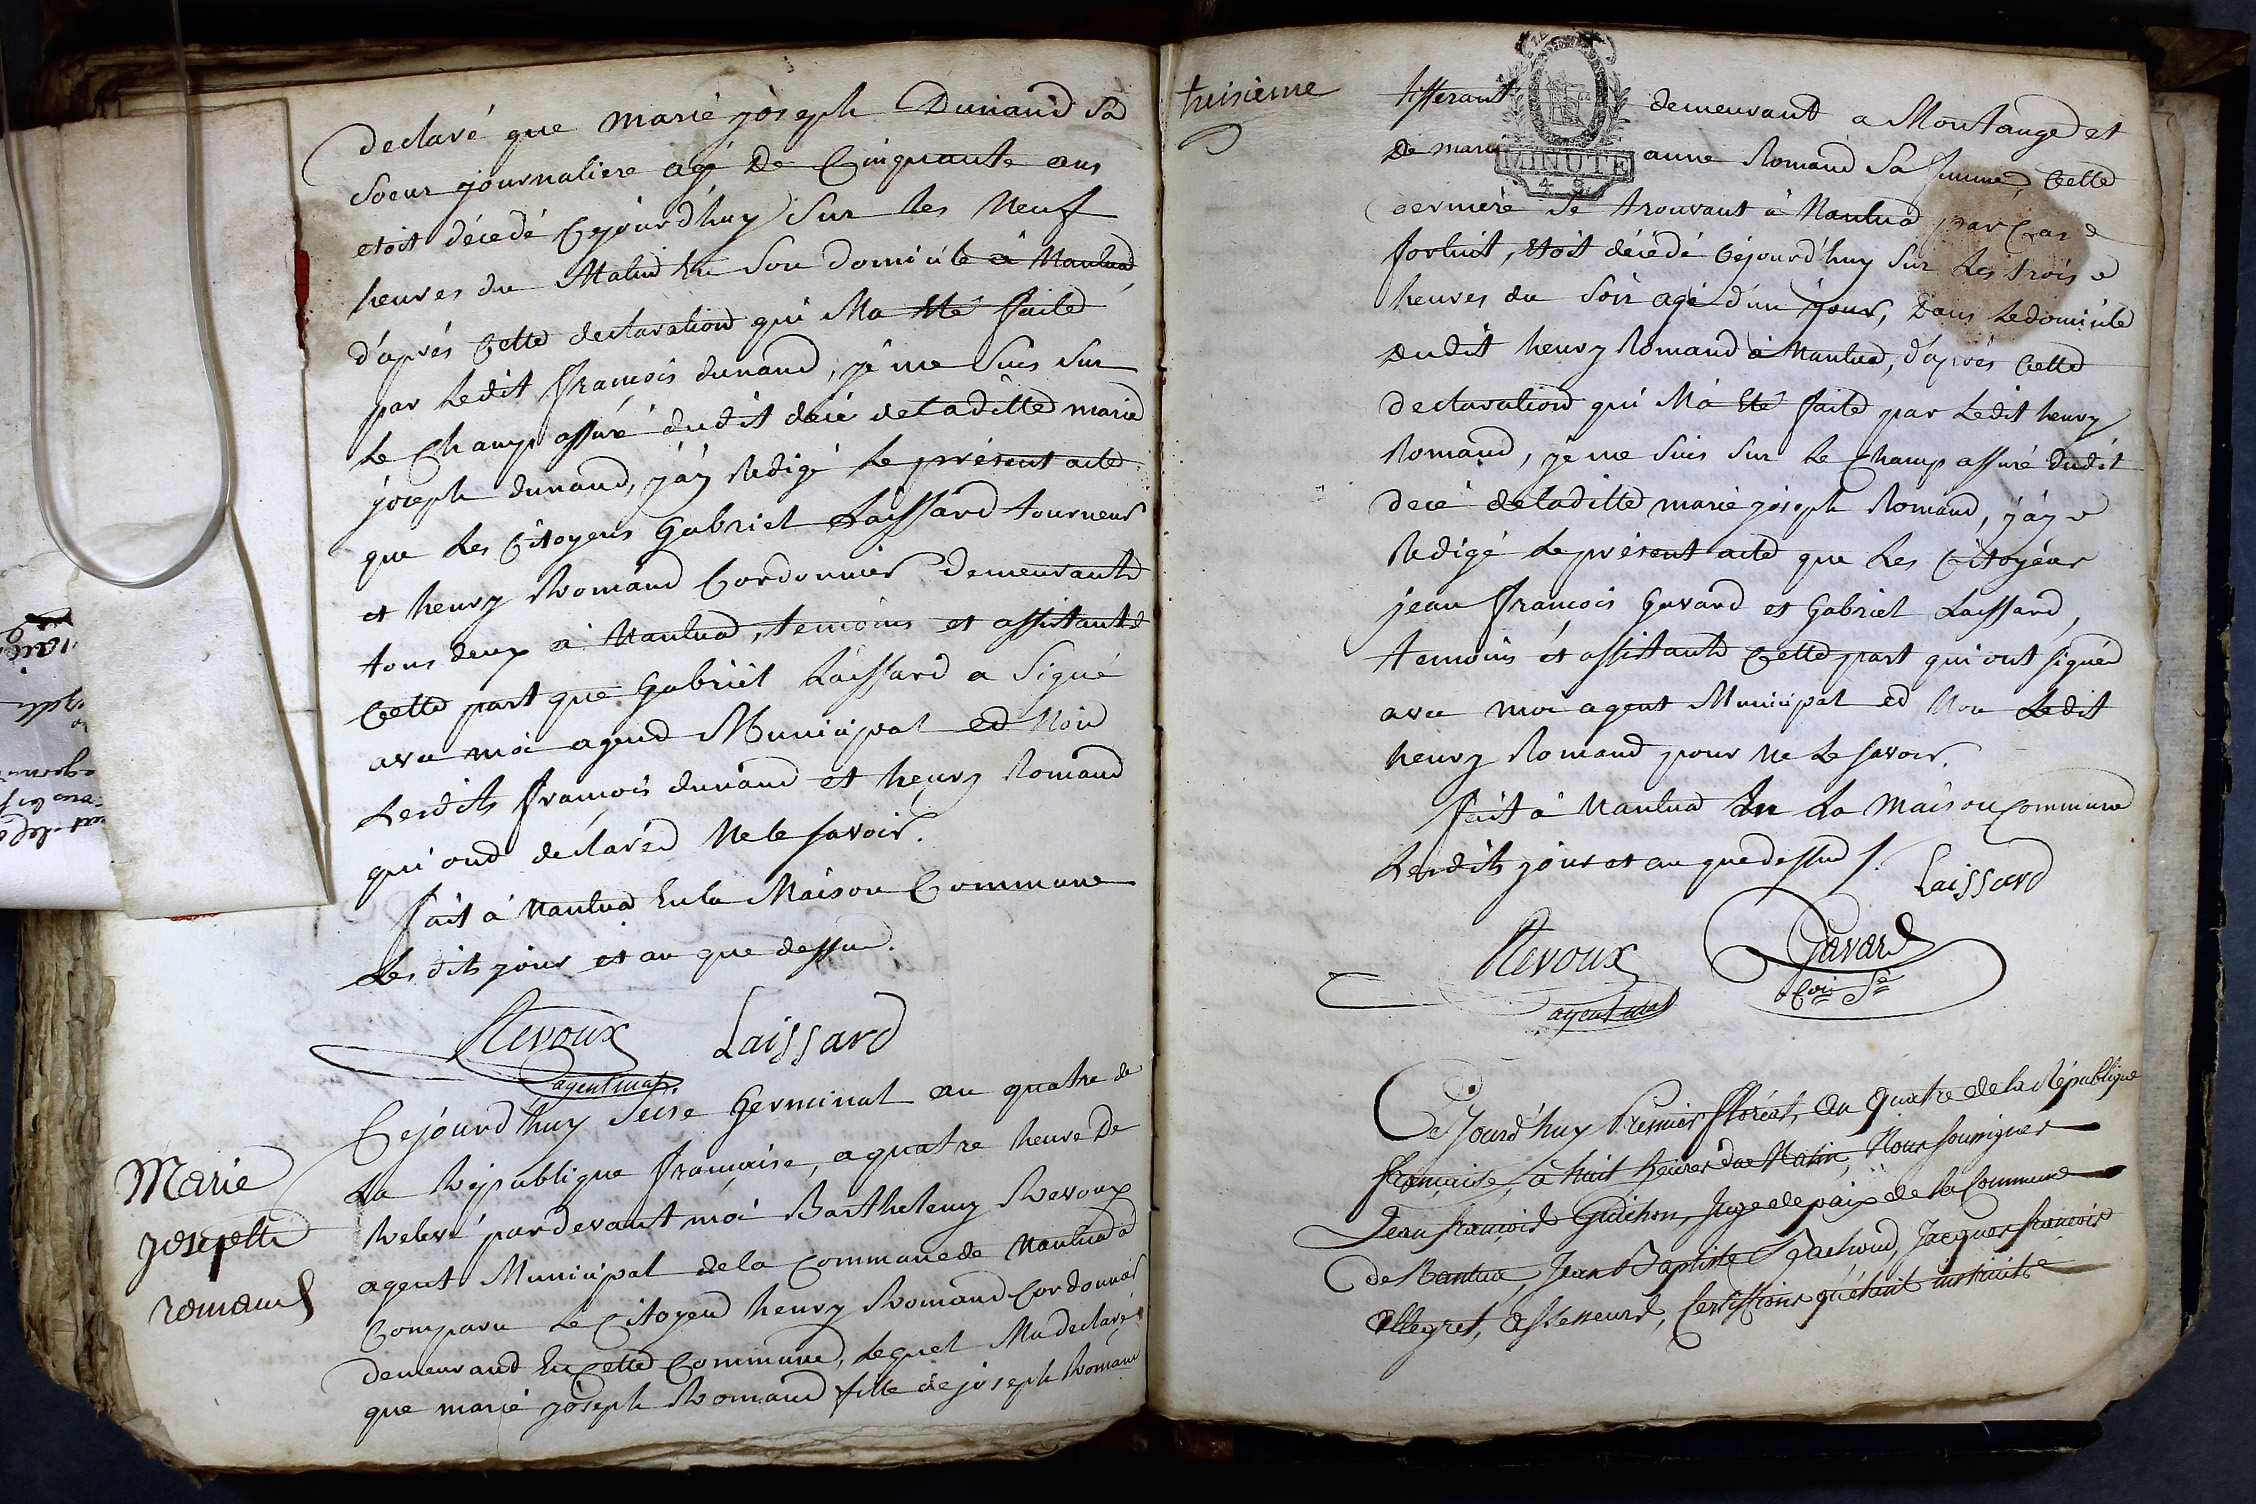 declaré que marie joseph Dunand Sa
Soeur journaliere agé De Cinquante ans
etoit décedé Cejourd'huy Sur les Neuf
heures du Matin En Son domicile à Nantua
d'aprés Cette declaration qui Ma Eté faite
par Ledit françois dunand, je me Suis Sur
Le Champ assuré dudit décé de Laditte marie
joseph dunand, j'ay Redigé Le présent acte
que Les Citoyens Gabriel Laissard tourneur
et henry Romand Cordonnier demeurants
tous deux à Nantua, temoins et assistants
Cette part que Gabriel Laissard a Signé
avec moi agend Municipal ed Non
Lesdits françois dunand et henry Romand
qui ond declaréd Ne le savoir.
fait à Nantua En la Maison Commune
Les dits jour et an que dessus.
Revoux Laissard
agent mal
Marie
josepette
romand
Cejourd'huy Seise Germinal an quatre de
La République française, a quatre heure De
Relevé pardevant moi Barthelemy Revoux
agent Municipal de la Commune de Nantua a
Comparu Le Citoyen henry Romand Cordonnier
demeurand En Cette Commune, Lequel Ma declaré
que marie joseph Romand fille de joseph Romand
treisieme
tisserant demeurant a Montange et
MINUTE
4 S.
De marie anne Romand Sa femme, Cette
derniere Se trouvant à Nantua par Cas
fortuit, etoit décédé Cejourd'huy Sur Les trois
heures du Soir agé d'un jour, Dans Le domicile
Dudit henry Romand à Nantua, d'aprés Cette
declaration qui Ma Eté faite par Ledit henry
Romand, je me Suis Sur Le Champ assuré dudit
decé de Laditte marie joseph Romand, j'ay
Redigé Le présent acte que Les Citoyens
jean françois Gavard et Gabriel Laissard,
temoins et assistants Cette part qui ont signéd
avec moi agent Municipal ed Non Ledit
henry Romand pour Ne Le Savoir.
fait à Nantua En La Maison Commune
Lesdits jour et an que dessus /.
Laissard
Revoux Gavard
agent mal
Cejourd'huy Premier floréal, an Quatre de la République
française, à huit heures du Matin, Nous soussignés
Jean françois Guichon, Juge de paix de la Commune
de Nantua, Jean Baptiste Jacques françois
Allegret, assesseurs, Certiffions qu'étant instruits